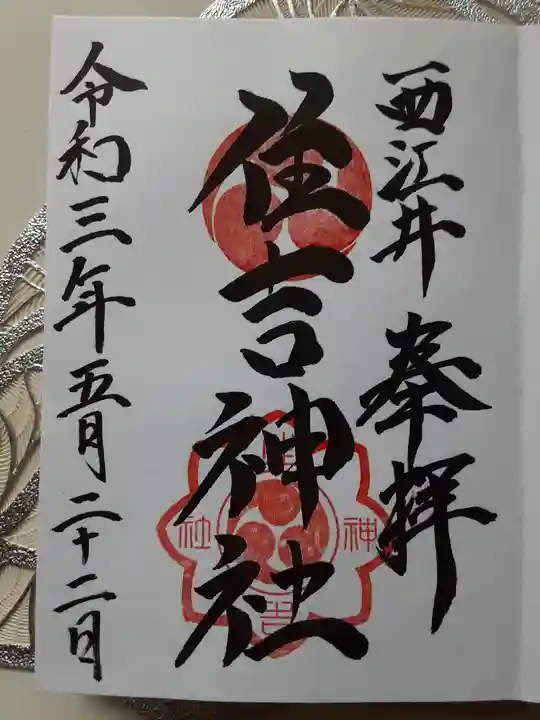 西江井 奉拝
住吉神社
令和三年五月二十二日
住
神
社
吉